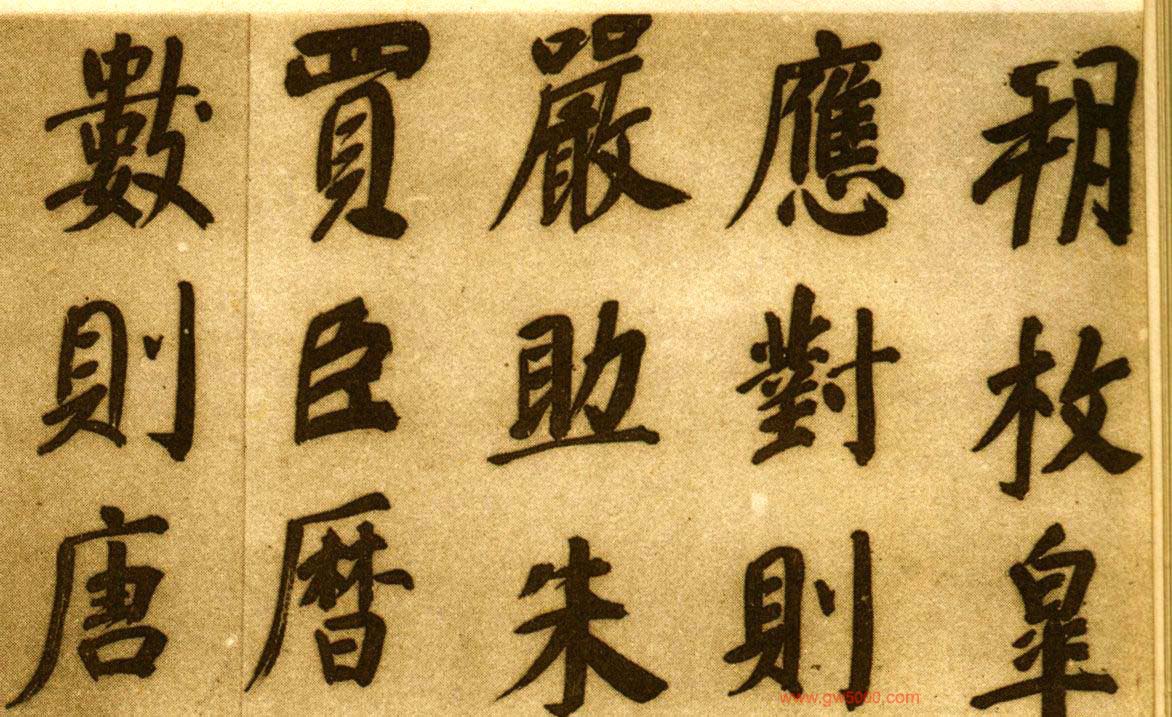 朔枚皐
應對則
嚴助朱
買臣曆
數則唐
www.gw5000.com